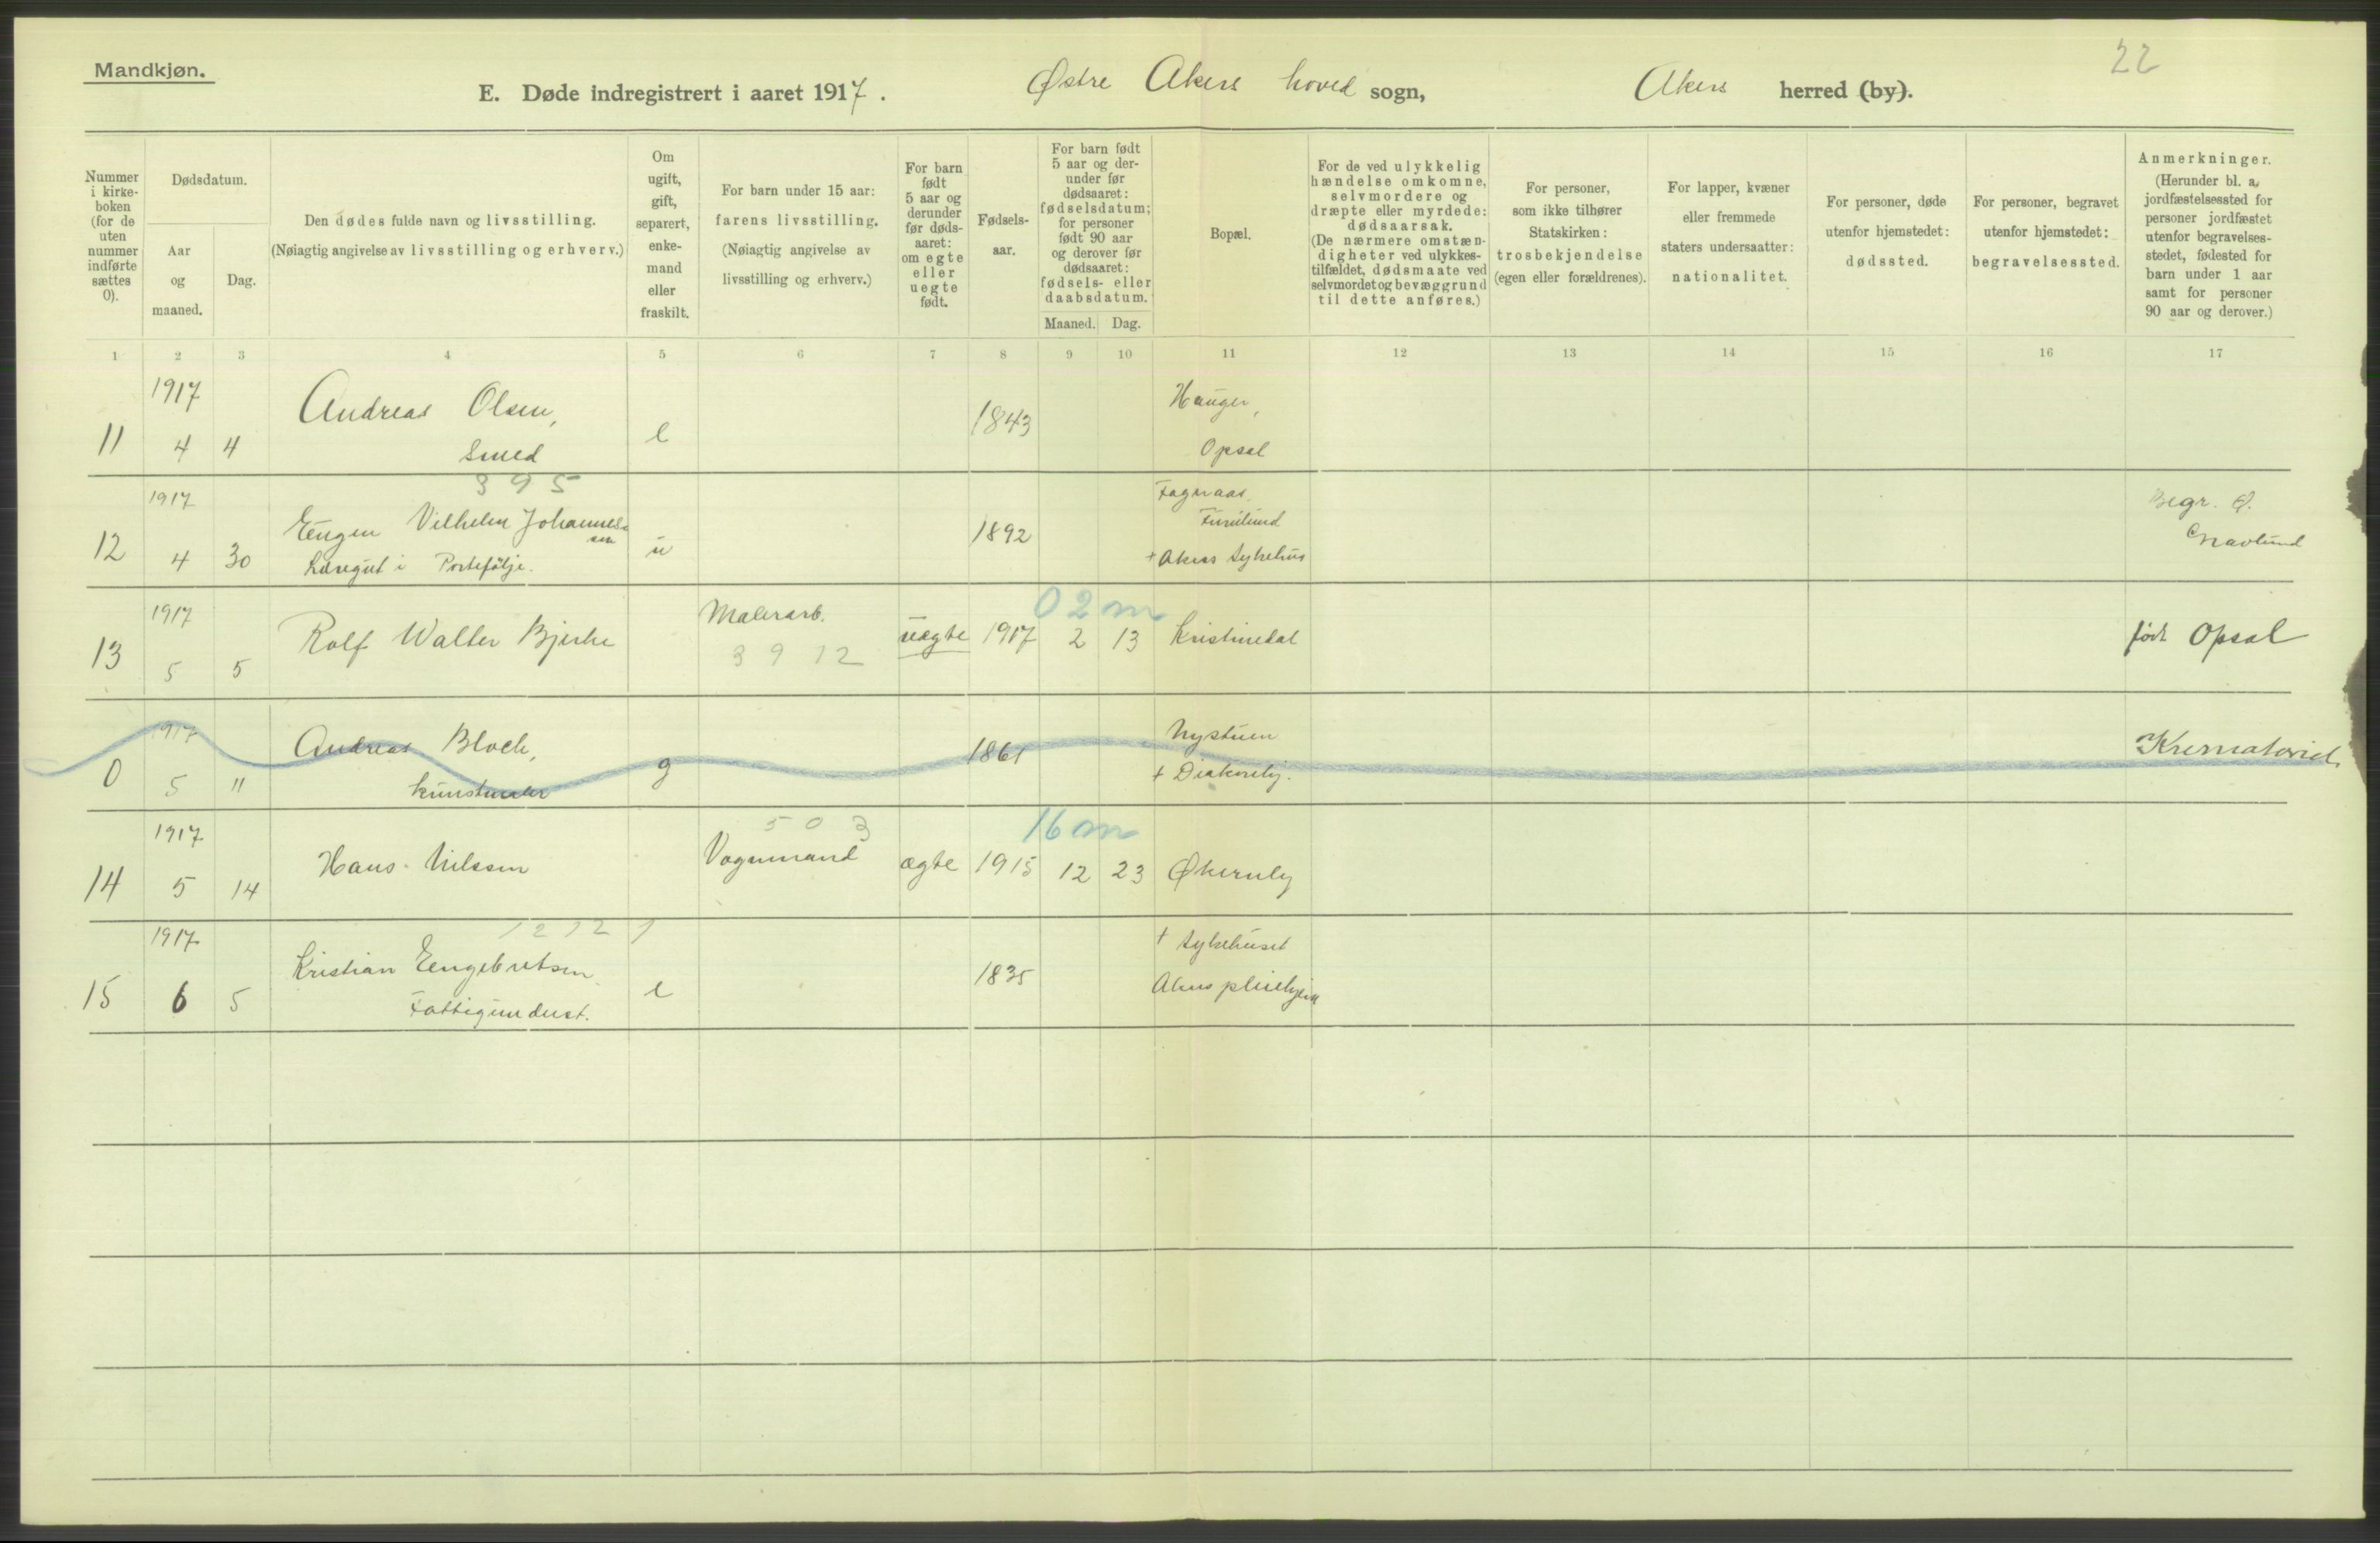 Mandkjøn.
22
E. Døde indregistrert i aaret 1917. Østre Akers hoved sogn, Akers herred (by).
Nummer i kirke-boken (for de uten nummer indførte sættes 0).
Dødsdatum.
Aar og maaned.
Dag.
Den dødes fulde navn og livsstilling.
(Nøiagtig angivelse av livsstilling og erhverv.)
Om ugift, gift, separert, enke-mand eller fraskilt.
For barn under 15 aar:
farens livsstilling.
(Nøiagtig angivelse av
livsstilling og erhverv.)
For barn født 5 aar og derunder før døds-aaret: om egte eller uegte født.
Fødsels-aar.
For barn født 5 aar og der-under før dødsaaret: fødselsdatum; for personer født 90 aar og derover før dødsaaret: fødsels- eller daabsdatum.
Maaned. Dag.
Bopæl.
For de ved ulykkelig hændelse omkomne, selvmordere og dræpte eller myrdede: dødsaarsak.
(De nærmere omstæn-digheter ved ulykkes-tilfældet, dødsmaate ved selvmordet og bevæggrund til dette anføres.)
For personer, som ikke tilhører Statskirken: trosbekjendelse (egen eller forældrenes).
For lapper, kvæner eller fremmede staters undersaatter: nationalitet.
For personer, døde utenfor hjemstedet: dødssted.
For personer, begravet utenfor hjemstedet: begravelsessted.
Anmerkninger.
(Herunder bl. a. jordfæstelsessted for personer jordfæstet utenfor begravelses-stedet, fødested for barn under 1 aar samt for personer 90 aar og derover.)
1 2 3 4 5 6 7 8 9 10 11 12 13 14 15 16 17
1917
11 4 4 Andreas Olsen, e 1843 Hauger,
Smed Opsal
395
1917
12 4 30 Eugen Vilhelm Johannes-
sen u 1892 Fageraas,
Furulund
Læregut i Portefølje. + Akers sykehus
Begr. Ø.
Gravlund
1917
13 5 5 Rolf Walter Bjerke Malerarb. uægte 1917 2 13 Kristinedal født Opsal
3912
02m
1917
0 5 11 Andreas Bloch, g 1861 Nystuen Krematoriet.
kunstmaler + Diakonhj.
503
16m
1917
14 5 14 Hans Nilssen Vognmand ægte 1915 12 23 Økernly
12121
1917
15 6 5 Kristian Eengebretsen e 1835 + sykehuset
Fattigunderst. Akers pleiehjem